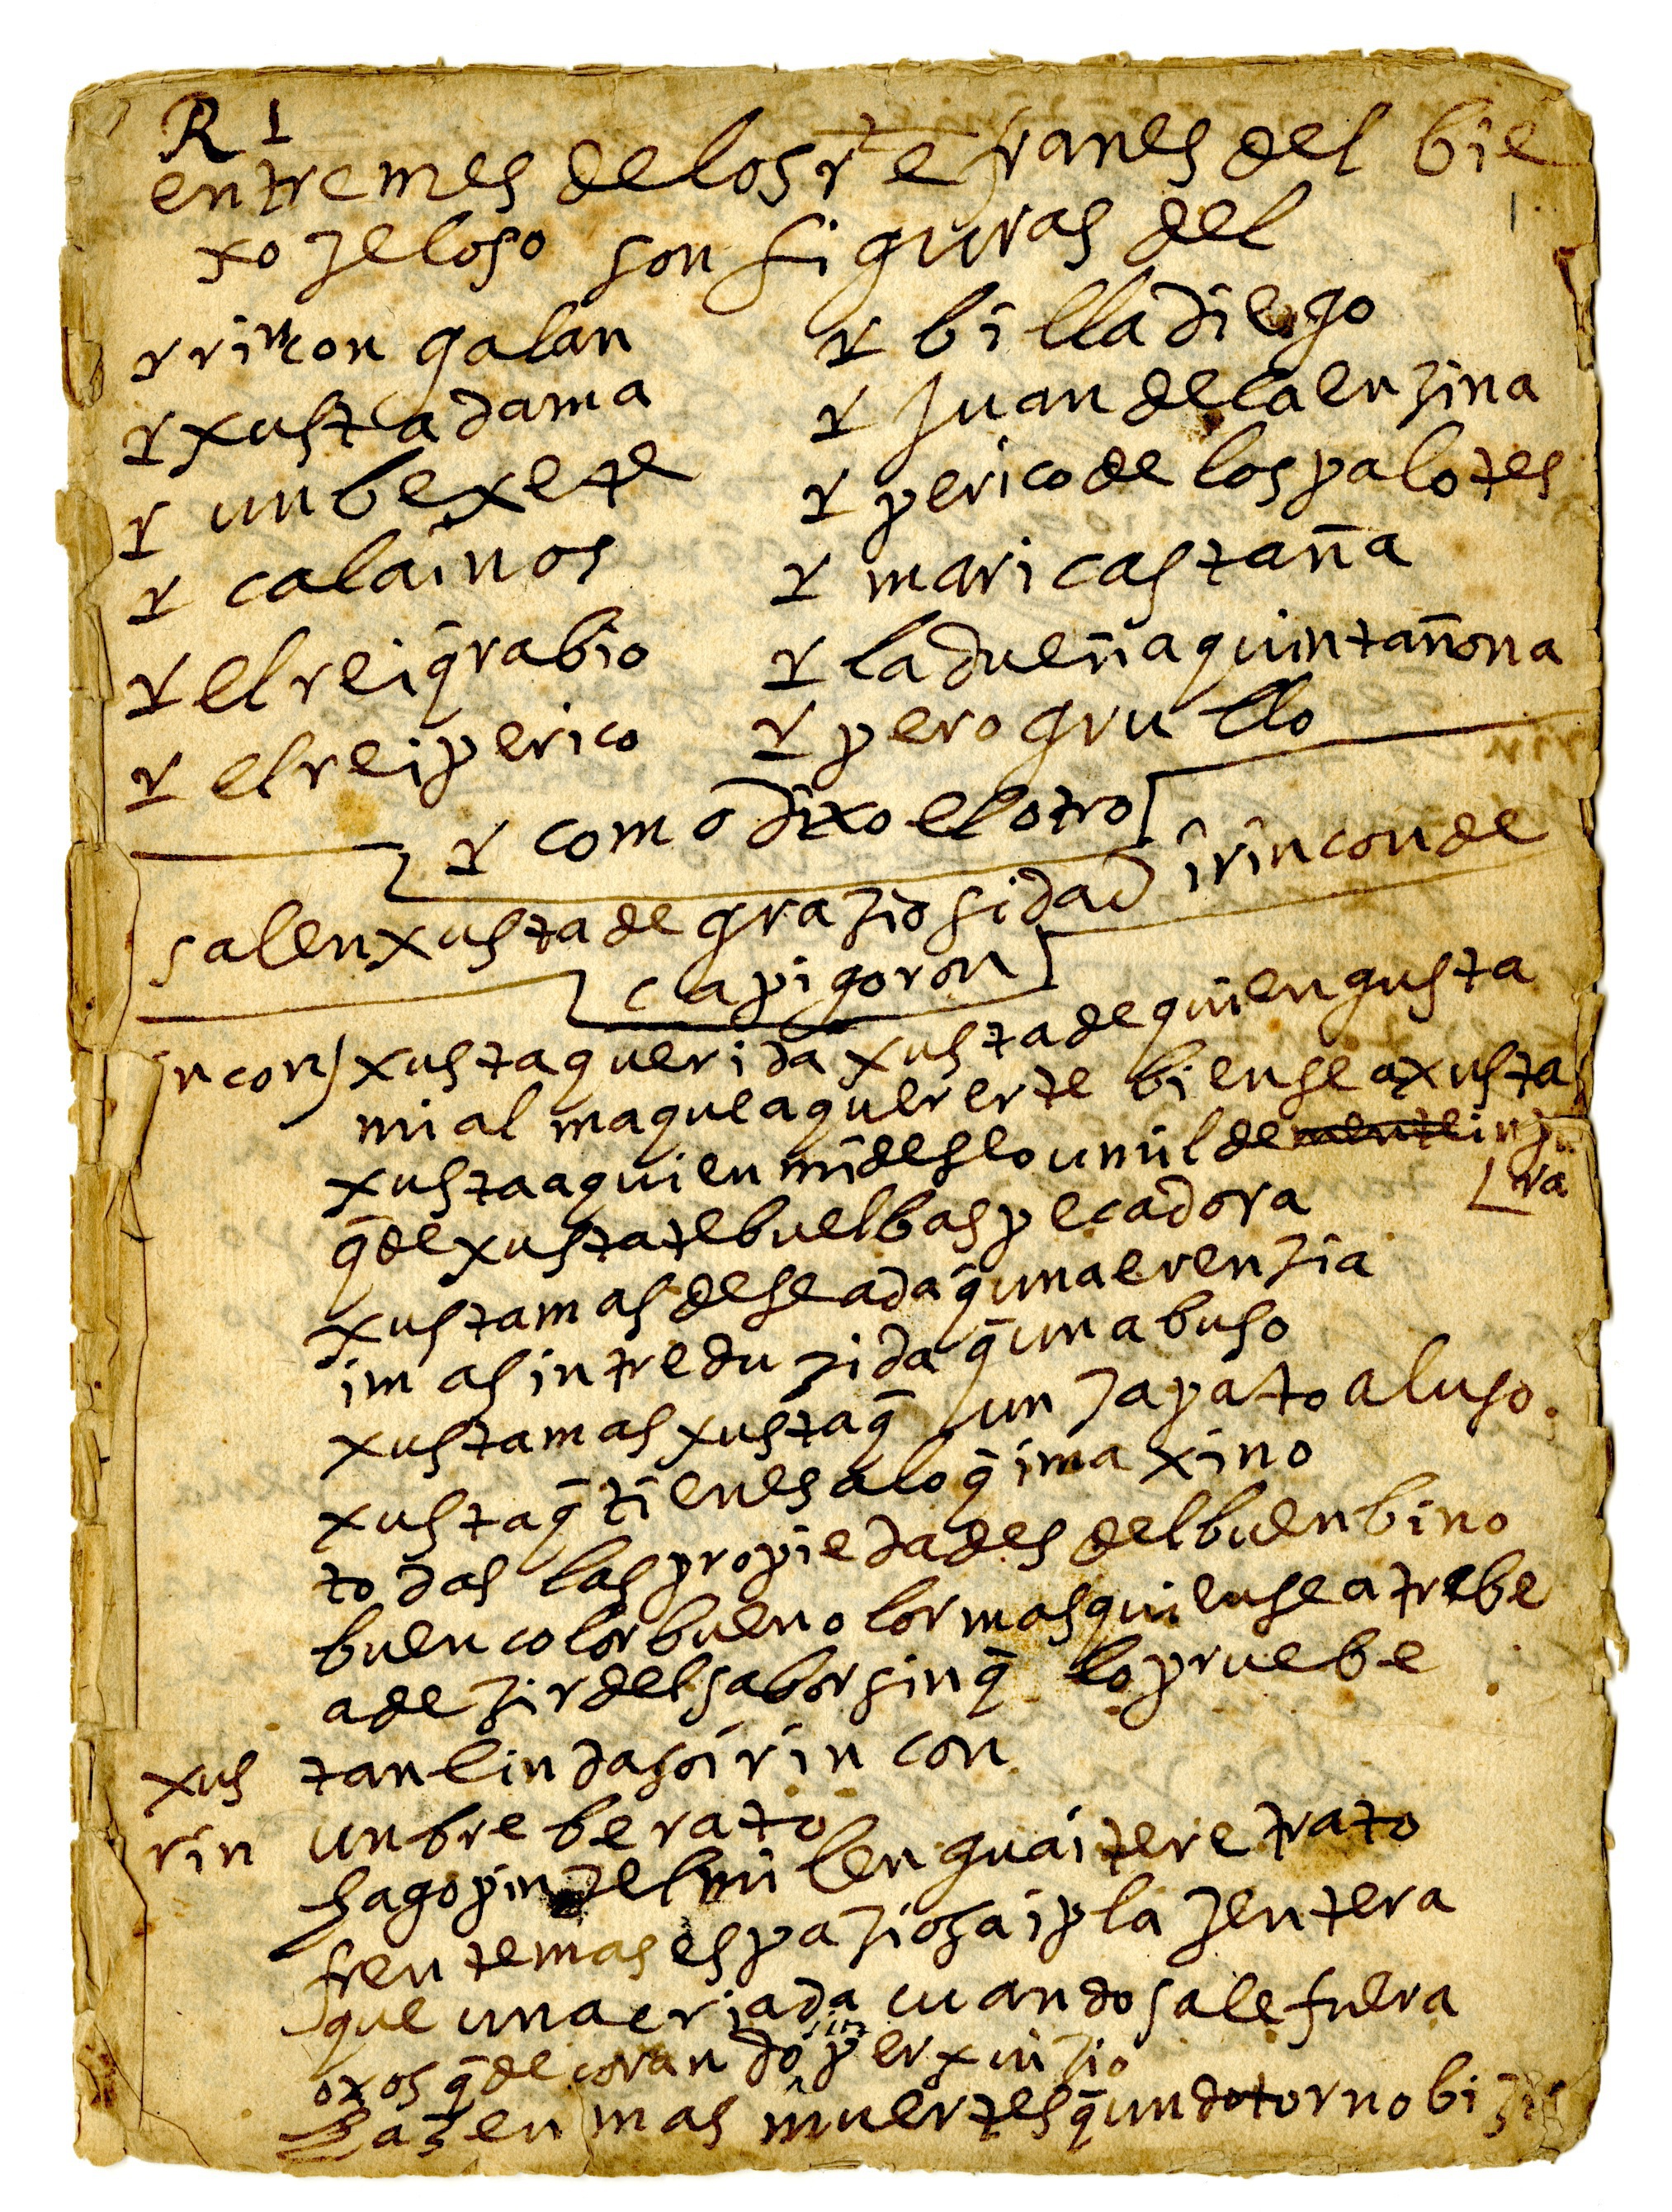 R 1
entremes de los refranes del bie
xo zeloso son figuras del
r rincon galan
r xusta dama
r un bexete
r calainos
r el rei q̄ rabio
r el rei perico
r billadiego
r juan de la enzina
r perico de los palotes
r mari castaña
r la dueña quintañona
r pero grullo
r como dixo el otro
salen xusta de graziosidad i rincon de
capigoron
rincon) xusta querida xusta de quien gusta
mi alma que a quererte bien se axusta
xusta a quien mi deseo umilde mente inju
ra
q̄ de xusta te buelbas pecadora
xusta mas deseada q̄ una erenzia
i mas intreduzida q̄ un abuso
xusta mas xusta q̄ un zapato al uso.
xusta q̄ tienes a lo q̄ imaxino
todas las propiedades del buen bino
buen color buen olor mas quien se atrebe
a dezir del sabor sin q̄ lo pruebe
xus tan linda soi rincon
rin un brebe rato
hago pinzel mi lengua i te retrato
frente mas espaziosa i plazentera
que una criada cuando sale fuera
oxos q̄ decorando sin perxuizio
hazen mas muertes q̄ un dotor nobizio